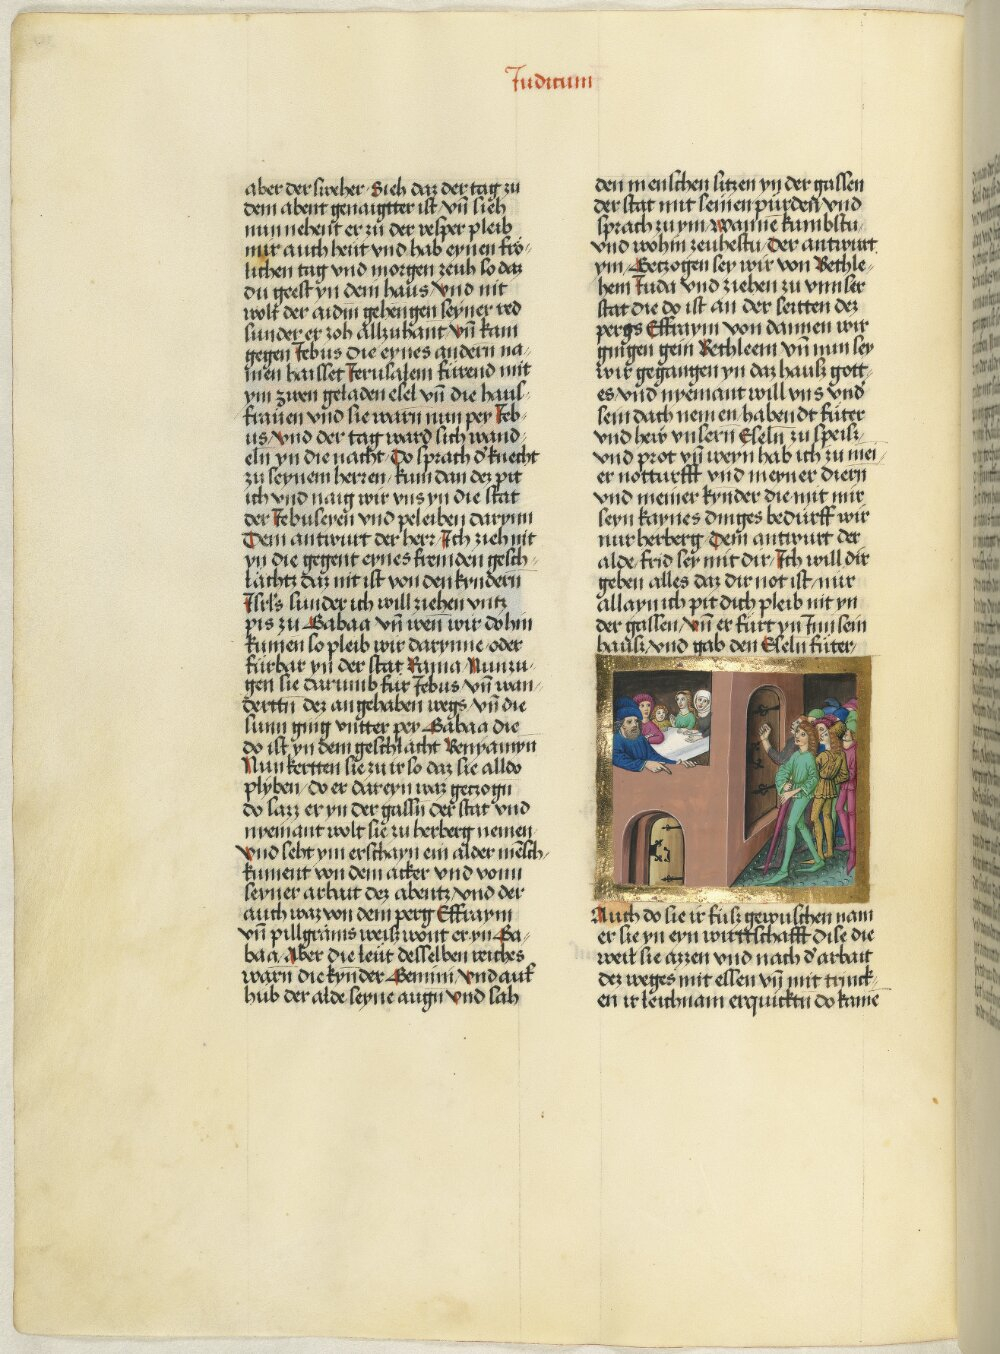 Judicum
aber der sweher Sieh daz der tag zu
dem abent genaigtter ist vñ sieh
nun nehent er zu der vesper pleib
mir auch heut vnd hab eynen frö⸗
lichen tag vnd morgen zeuh so daz
du geest yn dem haus Vnd nit
wolt der aidm gehengen seyner red
sunder er zoh Allzuhant Vñ kam
gegen Jebus die eynes andern na⸗
men haisset Jerusalem fürend mit
ym zwen geladen esel vñ die haus⸗
frauen vnd sie warn nun per Jeb⸗
us Vnd der tag ward sich wand⸗
eln yn die nacht Do sprach d' knecht
zu seynem herren kum dan dez pit
ich vnd naig wir vns yn die stat
der Jebuseyen vnd peleiben darynn
Dem antwurt der herr Ich zieh nit
yn die gegent eynes fremden gesch⸗
lächtz daz nit ist von den kyndern
Isrls sunder ich will ziehen vntz
pis zu Gabaa vñ wen wir do hin
kumen so pleib wir darynne oder
fürbar yn der stat Rama Nun zu⸗
gen sie darumb für Jebus vñ wan⸗
dertn dez an gehaben wegs vñ die
sunn ging vntter per Gabaa die
do ist yn dem geschlächt Benyamyn
Nun kertten sie zu ir so daz sie alldo
plyben do er dareyn waz getzogn
do sazz er yn der gassn der stat vnd
nyemant wolt sie zu herberg nemen
Vnd seht ym erschayn ein alder mẽsch⸗
kument von dem acker vnd vonn
seyner arbait dez abentz vnd der
auch waz von dem perg Effraym
vñ pillgrams weis wont er yn Ga⸗
baa Aber die leut desselben reiches
warn die kynder Gemini Vnd auf
hub der alde seyne augñ Vnd sah
den menschen sitzen yn der gassen
der stat mit seinen pürdeñ vnd
sprach zu ym Wanne kumbstu
vnd wohin zeuhestu Der antwurt
ym Getzogen sey wir von Bethle⸗
hem Juda vnd ziehen zu vnnser
stat die do ist an der seitten dez
pergs Effraym von dannen wir
gingen gein Bethleem vñ nun sey
wir gegangen yn daz haus gott⸗
es vnd nyemant will vns vnd'
sein dach nemen habendt füter
vnd hew vnsern Eseln zu speis
vnd prot vñ weyn hab ich zu mei⸗
er notturfft vnd meyner diern
vnd meiner kynder die mit mir
seyn kaynes dinges bedürff wir
nur herberg Dem antwurt der
alde frid sey mit dir Ich will dir
geben alles daz dir not ist nur
allayn ich pit dich pleib nit yn
der gassen Vñ er fürt yn Inn sein
haus vnd gab den Eseln füter
Auch do sie ir füs gewuschen nam
er sie yn eyn wirttschafft dise die
weil sie azzen vnd nach d' arbait
dez weges mit essen vñ mit trinck⸗
en ir leichnam erquicktñ do kame